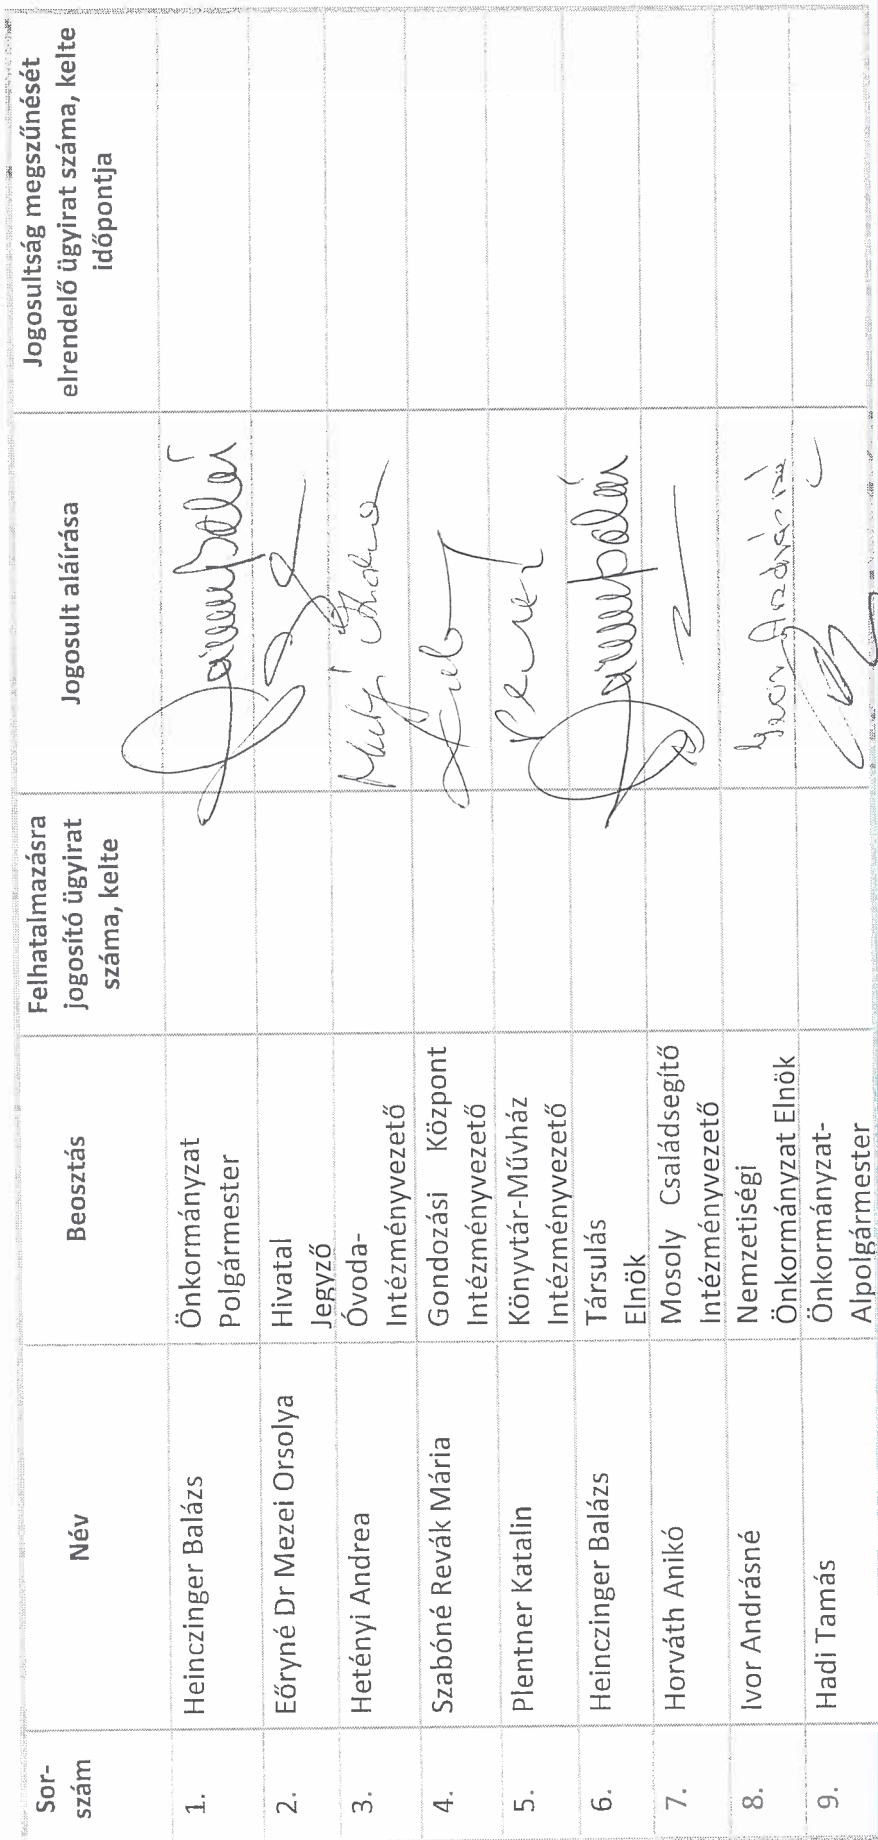 Sor-
szám
Név
Beosztás
Felhatalmazásra
jogosító ügyirat
száma, kelte
Jogosult aláírása
Jogosultság megszűnését
elrendelő ügyirat száma, kelte
időpontja
1.
Heinczinger Balázs
Önkormányzat
Polgármester
2.
Eőryné Dr Mezei Orsolya
Hivatal
Jegyző
3.
Hetényi Andrea
Óvoda-
Intézményvezető
4.
Szabóné Revák Mária
Gondozási Központ
Intézményvezető
5.
Plentner Katalin
Könyvtár-Művház
Intézményvezető
6.
Heinczinger Balázs
Társulás
Elnök
7.
Horváth Anikó
Mosoly Családsegítő
Intézményvezető
8.
Ivor Andrásné
Nemzetiségi
Önkormányzat Elnök
Ivor Andrásné
9.
Hadi Tamás
Önkormányzat-
Alpolgármester